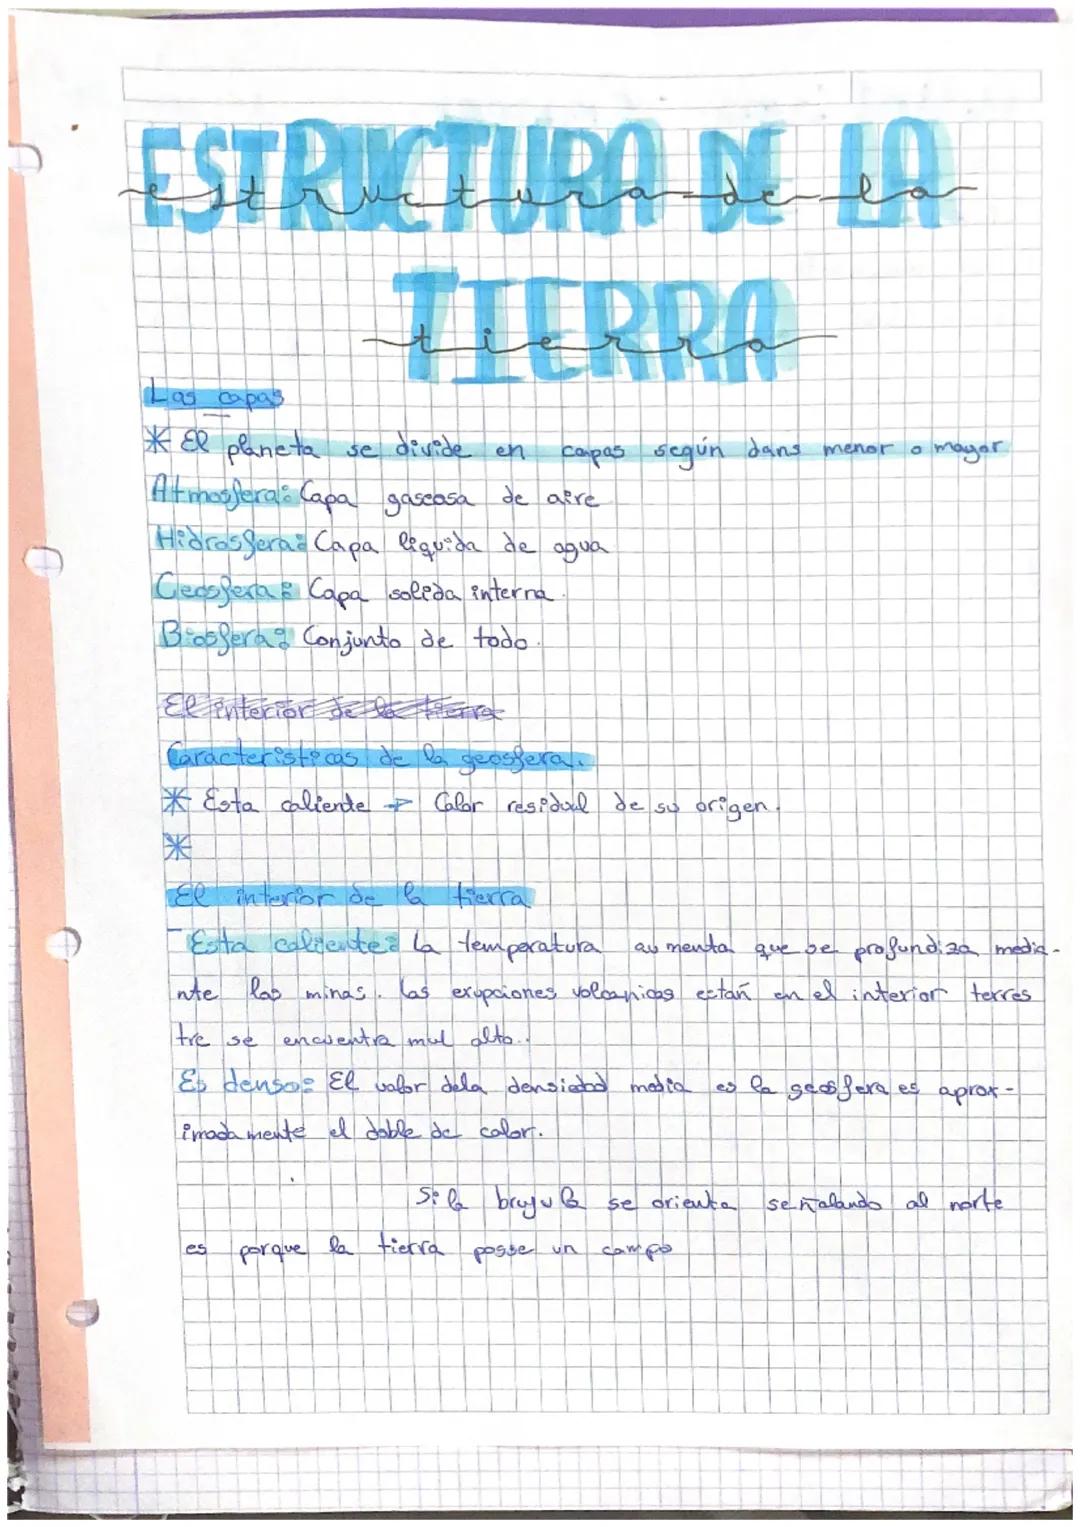 ESTRUCTURA DE LA
estructura de la
TIERRA
tierra
Las capas
* El planeta se divide en capas según dans menor o mayor
Atmosfera: Capa gaseasa de aire
Hidrosfera: Capa liquida de agua
Geosfera: Capa solida interna.
Biosfera: Conjunto de todo.
El interior de la tierra
Caracteristicas de la geosfera.
* Esta caliente → Calor residual de su origen.
*
El interior de la tierra
Esta caliente: La temperatura aumenta que se profundiza media-
nte las minas. Las erupciones volcanicas estañ en el interior terres
tre se encuentra mul alto..
Es denso: El valor dela densidad media es la geosfera es aprox-
imadamente el doble de calor.
Si la brujula se orienta señalando al norte
es porque la tierra posse un campo